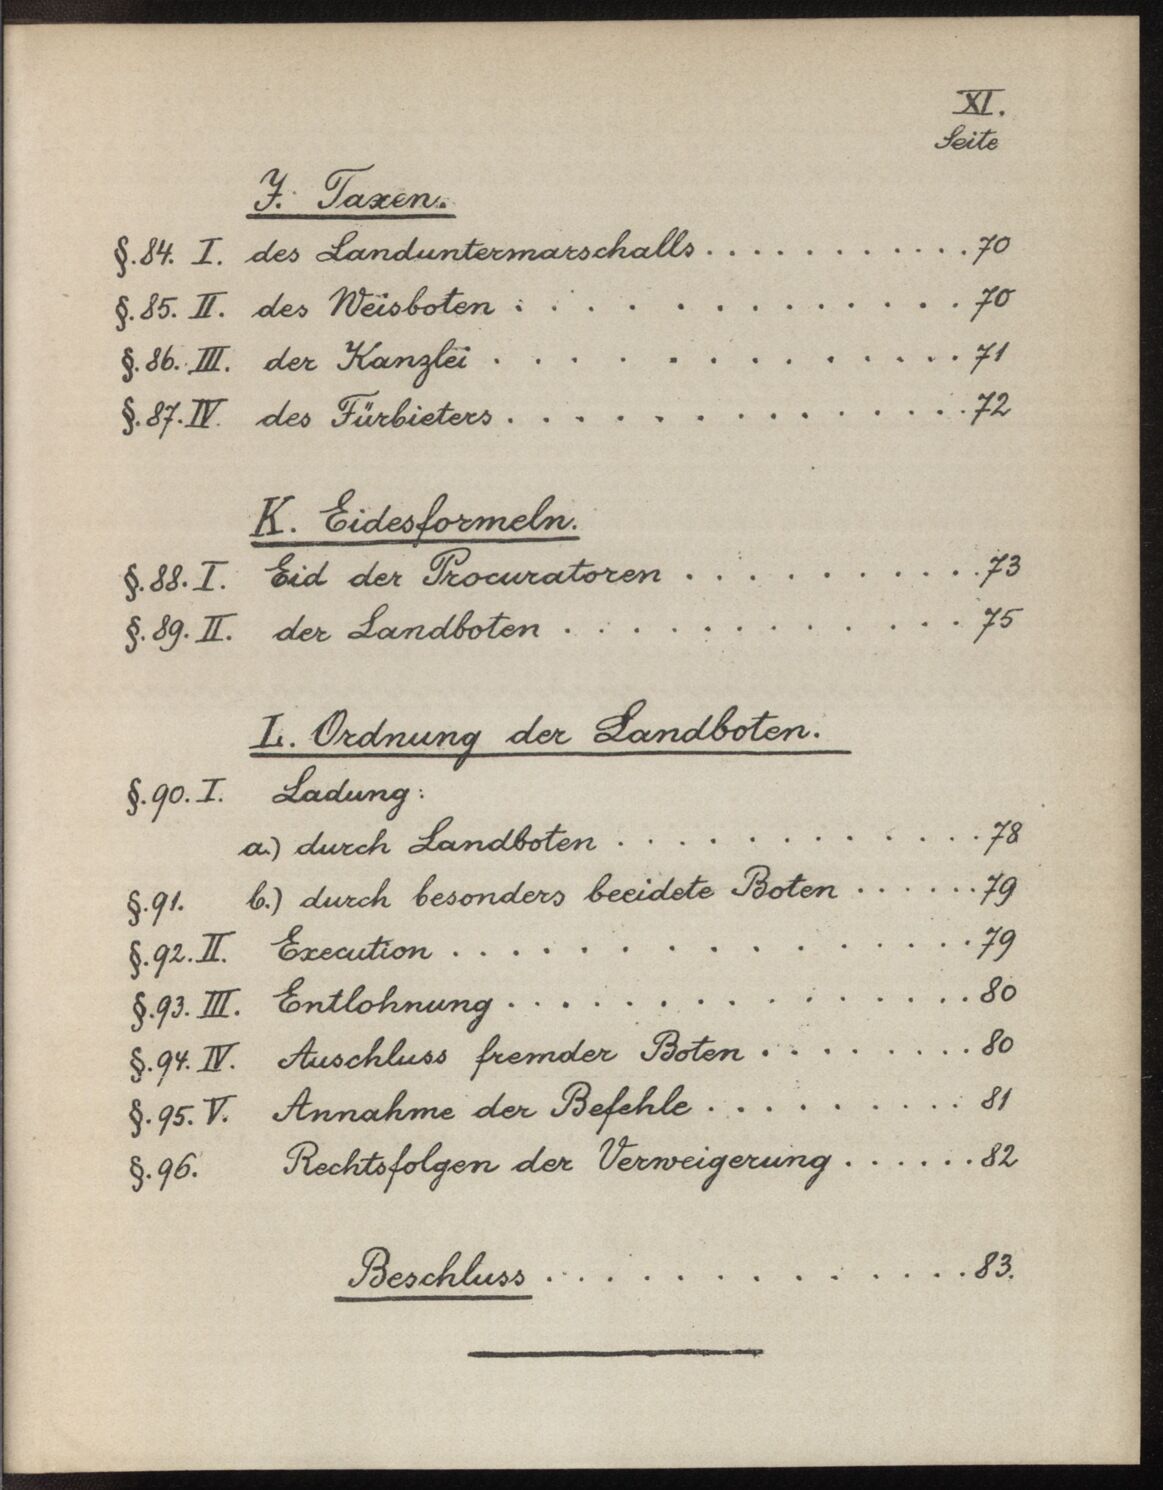 XI.
Seite
J. Taxen.
§. 84. I. des Landuntermarschalls . . . . . . . . . . . 70
§. 85. II. des Weisboten . . . . . . . . . . . . . 70
§. 86. III. der Kanzlei . . . . . . . . . . . . . . . 71
§. 87. IV. des Fürbieters . . . . . . . . . . . . . . 72
K. Eidesformeln.
§. 88. I. Eid der Procuratoren . . . . . . . . . . . . 73
§. 89. II. der Landboten . . . . . . . . . . . . . 75
L. Ordnung der Landboten.
§. 90. I. Ladung:
a.) durch Landboten . . . . . . . . . . . . . 78
§. 91. b.) durch besonders beeidete Boten . . . . . . 79
§. 92. II. Execution . . . . . . . . . . . . . . . . 79
§. 93. III. Entlohnung . . . . . . . . . . . . . . . 80
§. 94. IV. Auschluss fremder Boten . . . . . . . . . 80
§. 95. V. Annahme der Befehle . . . . . . . . . . 81
§. 96. Rechtsfolgen der Verweigerung . . . . . . 82
Beschluss . . . . . . . . . . . . . . . 83.